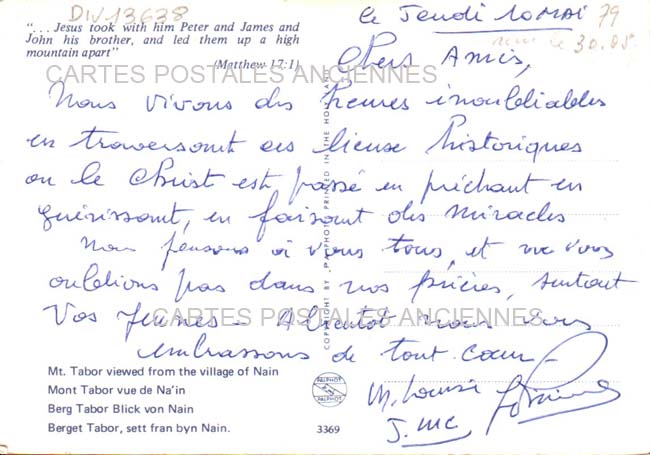 DIV13638
"... Jesus took with him Peter and James and
John his brother, and led them up a high
mountain apart"
(Matthew 17:1)
Le Jeudi 10 MAI 79
le 30.05.
Chers Amis,
CARTES POSTALES ANCIENNES
Nous vivons des heures inoubliables
en traversant ces lieux historiques
ou le Christ est passé en prêchant en
guérissant, en faisant des miracles
Nous pensons à vous tous, et ne vous
oublions pas dans nos prières, surtout
vos jeunes - A bientôt nous vous
CARTES POSTALES ANCIENNES
embrassons de tout coeur -
M. Louise
J. Mc
COPYRIGHT BY PALPHOT PRINTED IN THE HO
Mt. Tabor viewed from the village of Nain
Mont Tabor vue de Na'in
Berg Tabor Blick von Nain
Berget Tabor, sett fran byn Nain.
PALPHOT
3369